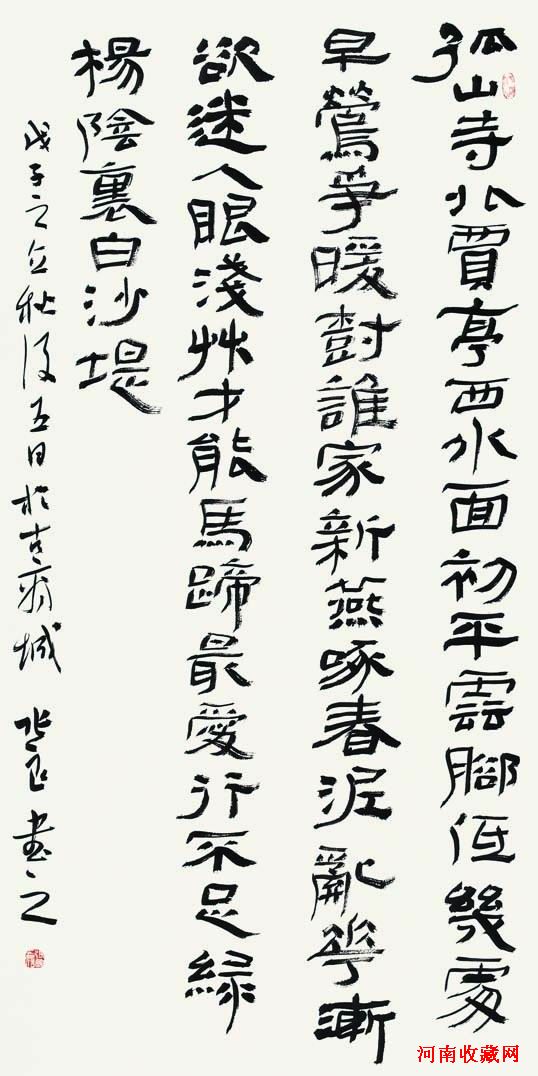 孤山寺北賈亭西水面初平雲腳低幾處
早鶯爭暖樹誰家新燕啄春泥亂華漸
欲迷人眼淺艸才能馬蹄最愛行不足綠
楊陰裏白沙堤
戊子之立秋後五日於古商城 書之
河南收藏网